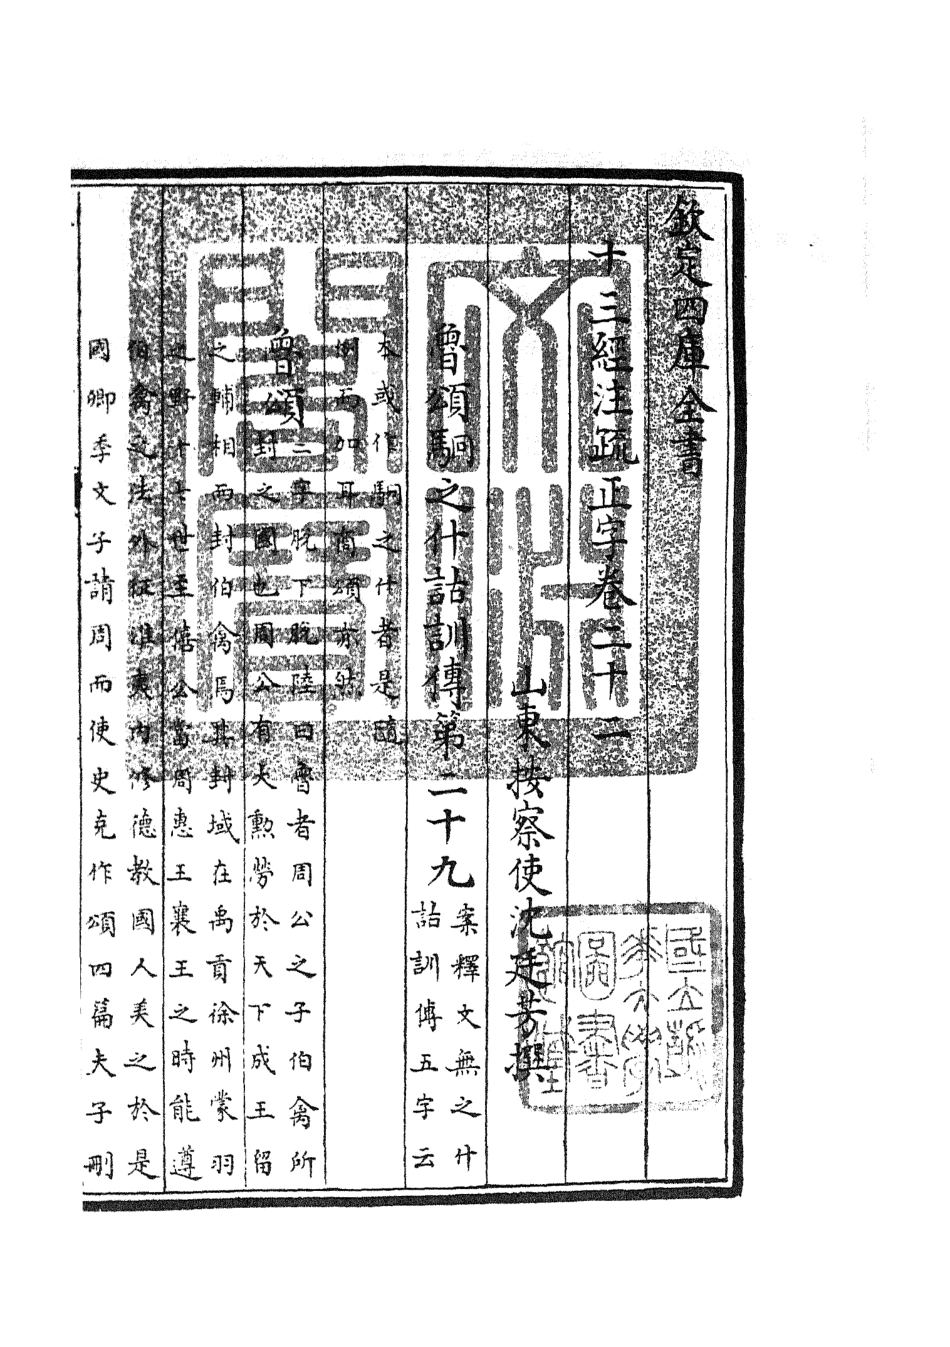 欽定四庫全書
十三經注疏正字卷二十二
山東按察使沈廷芳撰
魯頌駉之什詁訓傳第二十九
案釋文無之什
詁訓傳五字云
本或作駉之什者是隨
例而加耳商頌亦然
魯頌
二字脫下脫陸曰魯者周公之子伯禽所
封之國也周公有大勲勞於天下成王留
之輔相而封伯禽焉其封域在禹貢徐州蒙羽
之野十七世至僖公當周惠王襄王之時能遵
伯禽之法外征淮夷内修德教國人美之於是
國卿季文子請周而使史克作頌四篇夫子刪
文淵
閣寶